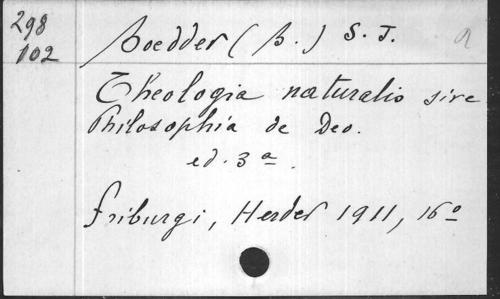 298
102
Boedder (B.) S. J.
a
Theologia naturalis sive
Philosophia de Deo.
ed. 3ª.
Friburgi, Herder 1911, 16º